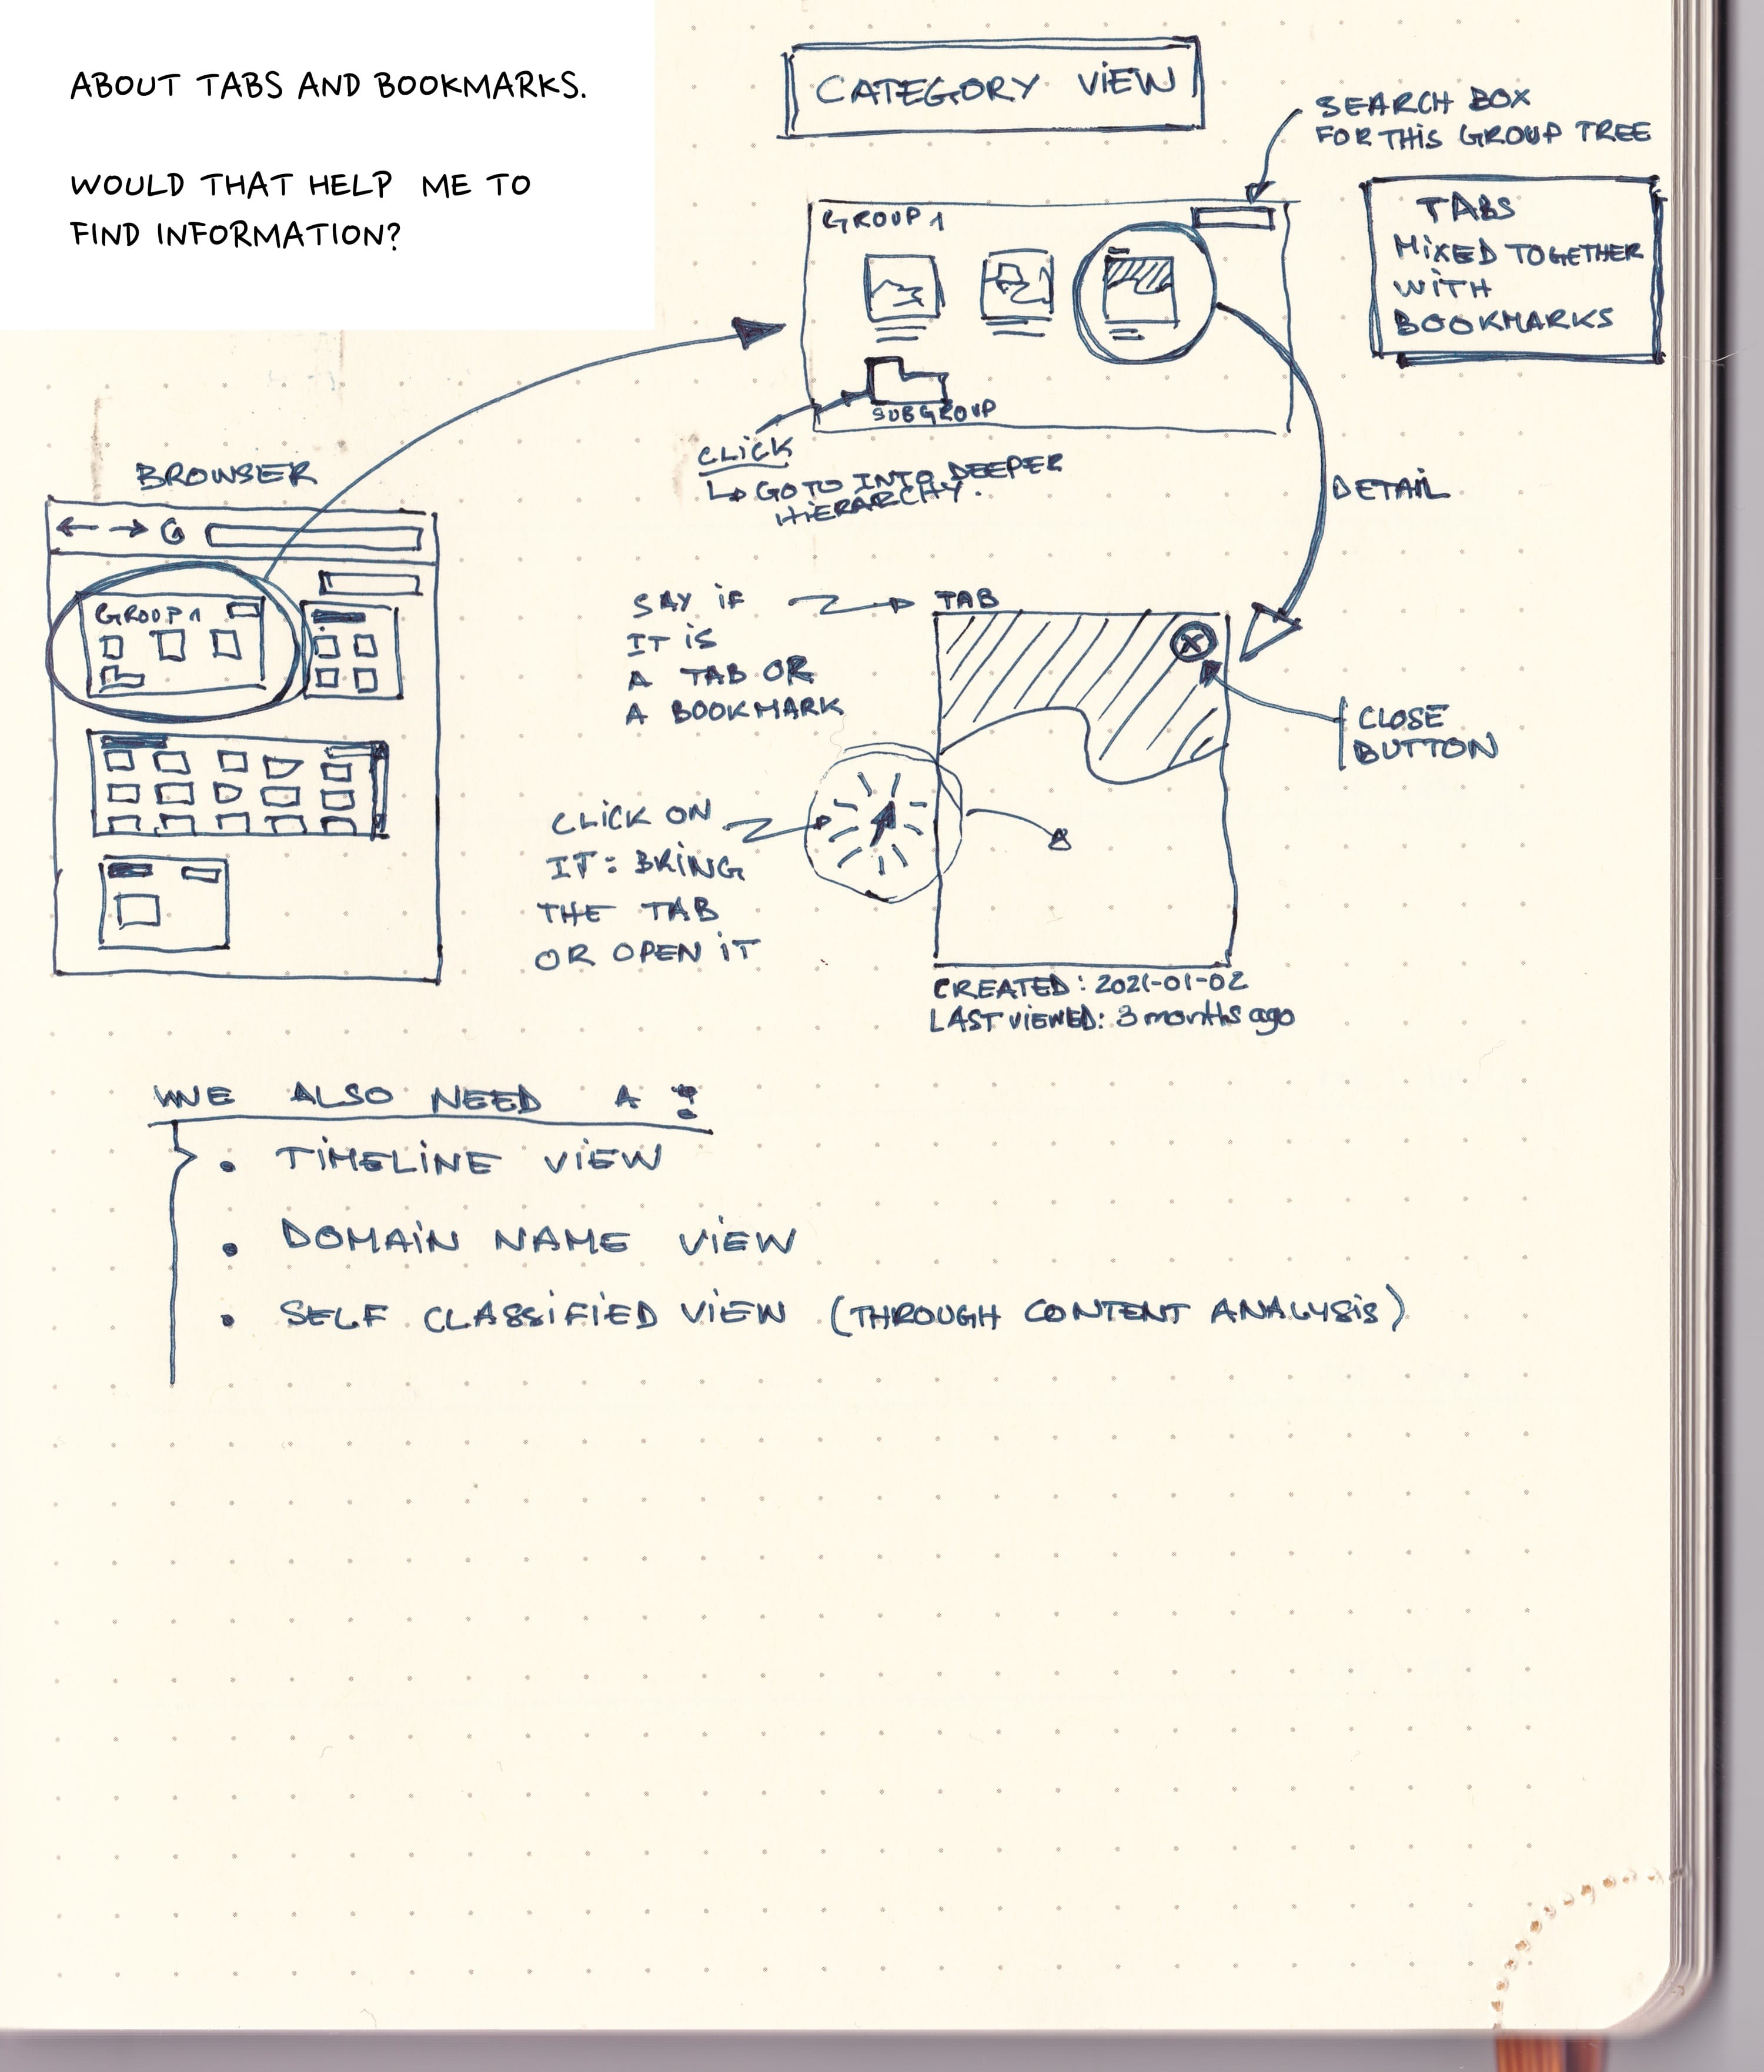 ABOUT TABS AND BOOKMARKS.
WOULD THAT HELP ME TO
FIND INFORMATION?
CATEGORY VIEW
SEARCH BOX
FOR THIS GROUP TREE
TABS
MIXED TOGETHER
WITH
BOOKMARKS
GROUP 1
SUBGROUP
CLICK
GO TO INTO DEEPER
HIERARCHY.
DETAIL
BROWSER
GROUP 1
SAY IF
IT IS
A TAB OR
A BOOKMARK
TAB
CLOSE
BUTTON
CLICK ON
IT: BRING
THE TAB
OR OPEN IT
CREATED: 2021-01-02
LAST VIEWED: 3 months ago
WE ALSO NEED A :
• TIMELINE VIEW
• DOMAIN NAME VIEW
• SELF CLASSIFIED VIEW (THROUGH CONTENT ANALYSIS)